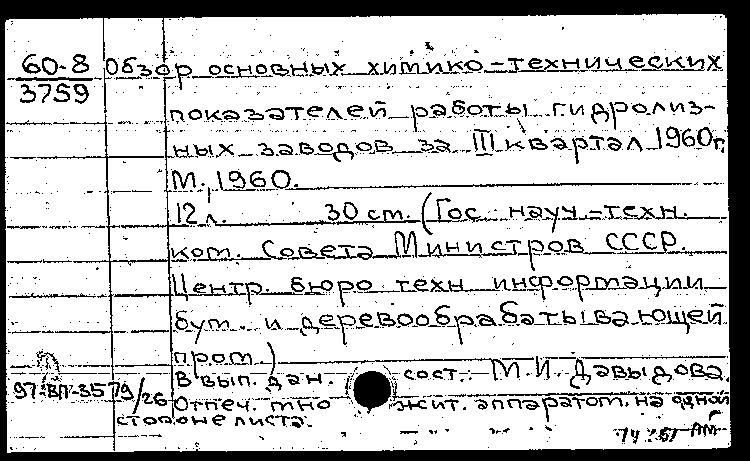 60-8 Обзор основных химико-технических
3759
показателей работы гидролиз-
ных заводов за III квартал 1960г.
М., 1960.
12 л. 30 ст. (Гос. науч.-техн.
ком. Совета Министров СССР.
Центр. бюро техн информации
бум. и деревообрабатывающей
пром.)
В вып. дан. сост.: М.И. Давыдова.
97-ВП-3579/26 Отпеч. множит. аппаратом на одной
стороне листа.